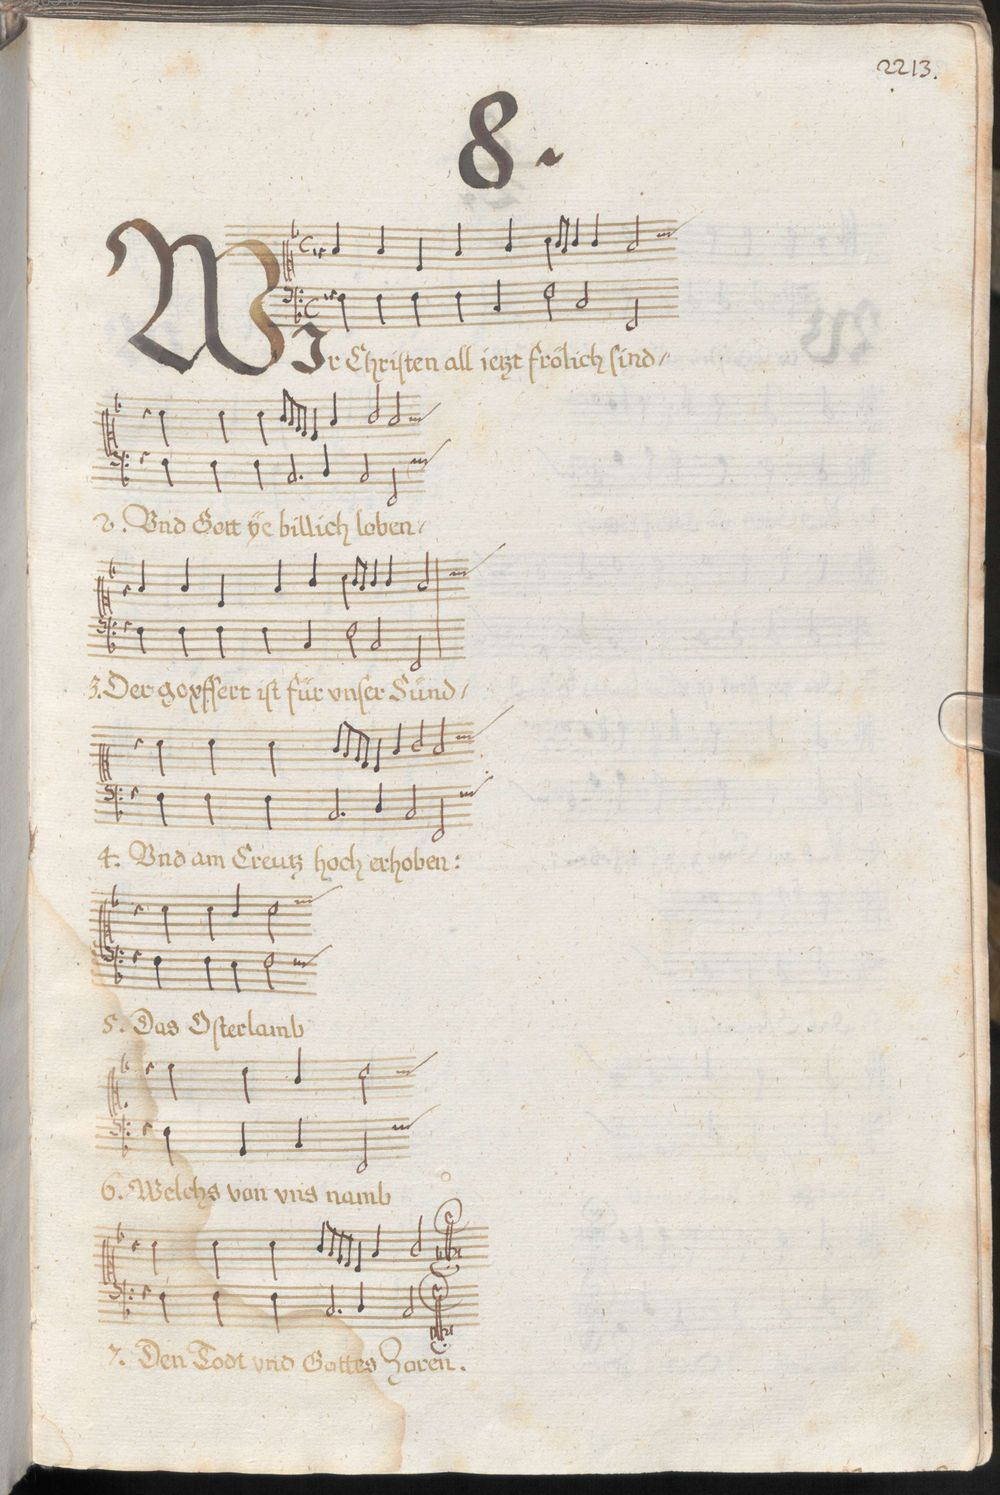 2213.
8.
Wir Christen all ietzt frölich sind/
2. Vnd Gott ÿe billich loben/
3. Der gopffert ist für vnser Sünd/
4. Vnd am Creutz hoch erhoben:
5. Das Osterlamb
6. Welchs von vns namb
7. Den Todt vnd Gottes Zoren.